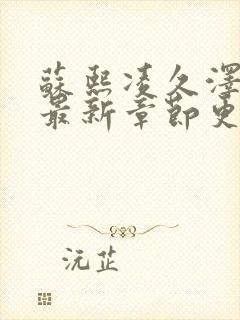 蘇熙凌久澤
最新章節更
沅芷